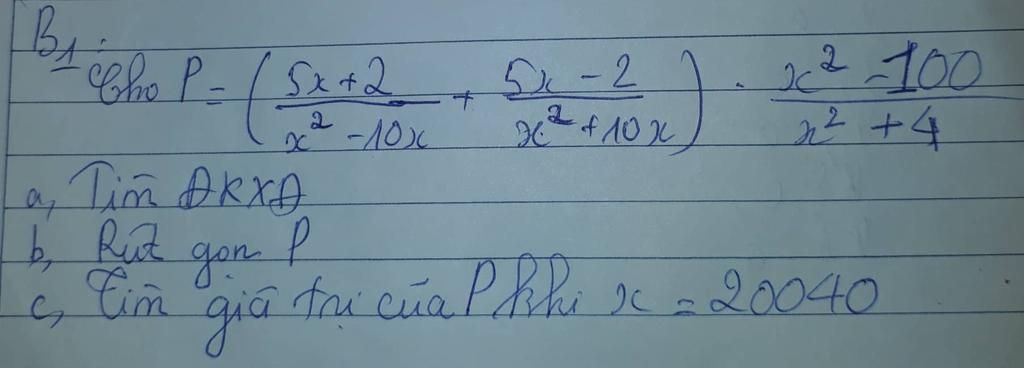 B1:
Cho P = ( (5x+2)/(x² - 10x) + (5x - 2)/(x² + 10x) ) . (x² - 100)/(x² + 4)
a, Tìm ĐKXĐ
b, Rút gọn P
c, Tìm giá trị của P khi x = 20040